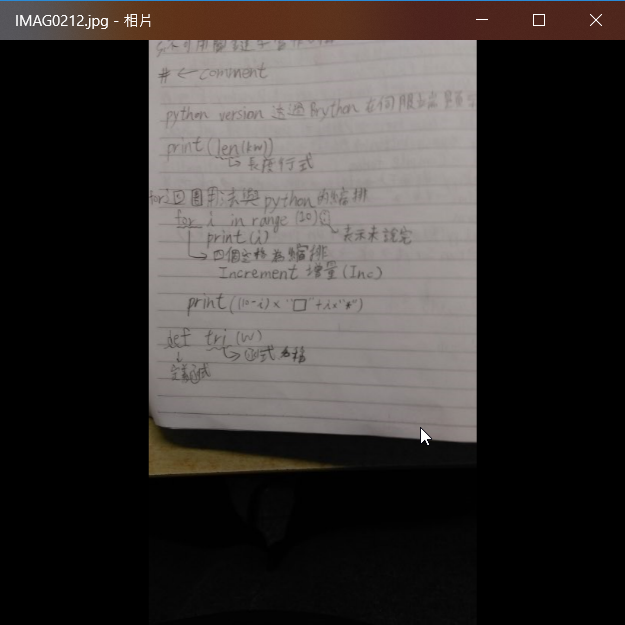 IMAG0212.jpg - 相片
# ← comment
python version 透過Brython 在何
print (len(kw))
→ 長度行式
for 迴圈用法與python 內縮排
for i in range (10):
print (i)
表示未設定
四個空格為縮排
Increment 增量 (Inc)
print ((10-i) × "□" + i × "*")
def tri (w)
→ 函式名稱
定義函式